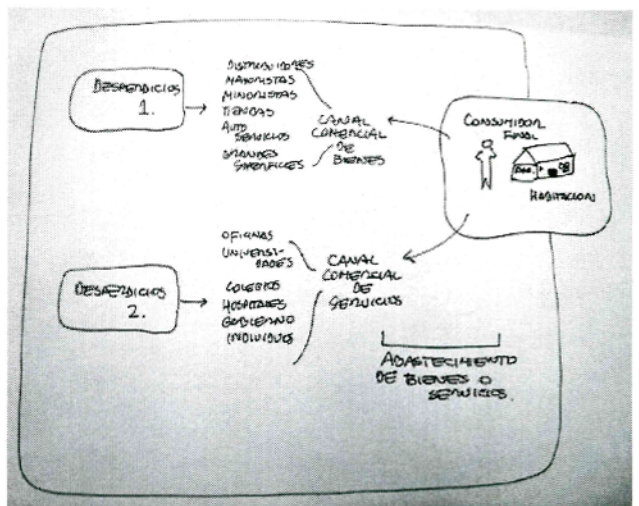 DESPERDICIOS
1.
DISTRIBUIDORES
MAYORISTAS
MINORISTAS
TIENDAS
AUTO
SERVICIOS
GRANDES
SUPERFICIES
CANAL
COMERCIAL
DE
BIENES
CONSUMIDOR
FINAL
HABITACION
DESPERDICIOS
2.
OFICINAS
UNIVERSI-
DADES
COLEGIOS
HOSPITALES
GOBIERNO
INDIVIDUOS
CANAL
COMERCIAL
DE
SERVICIOS
ABASTECIMIENTO
DE BIENES O
SERVICIOS.